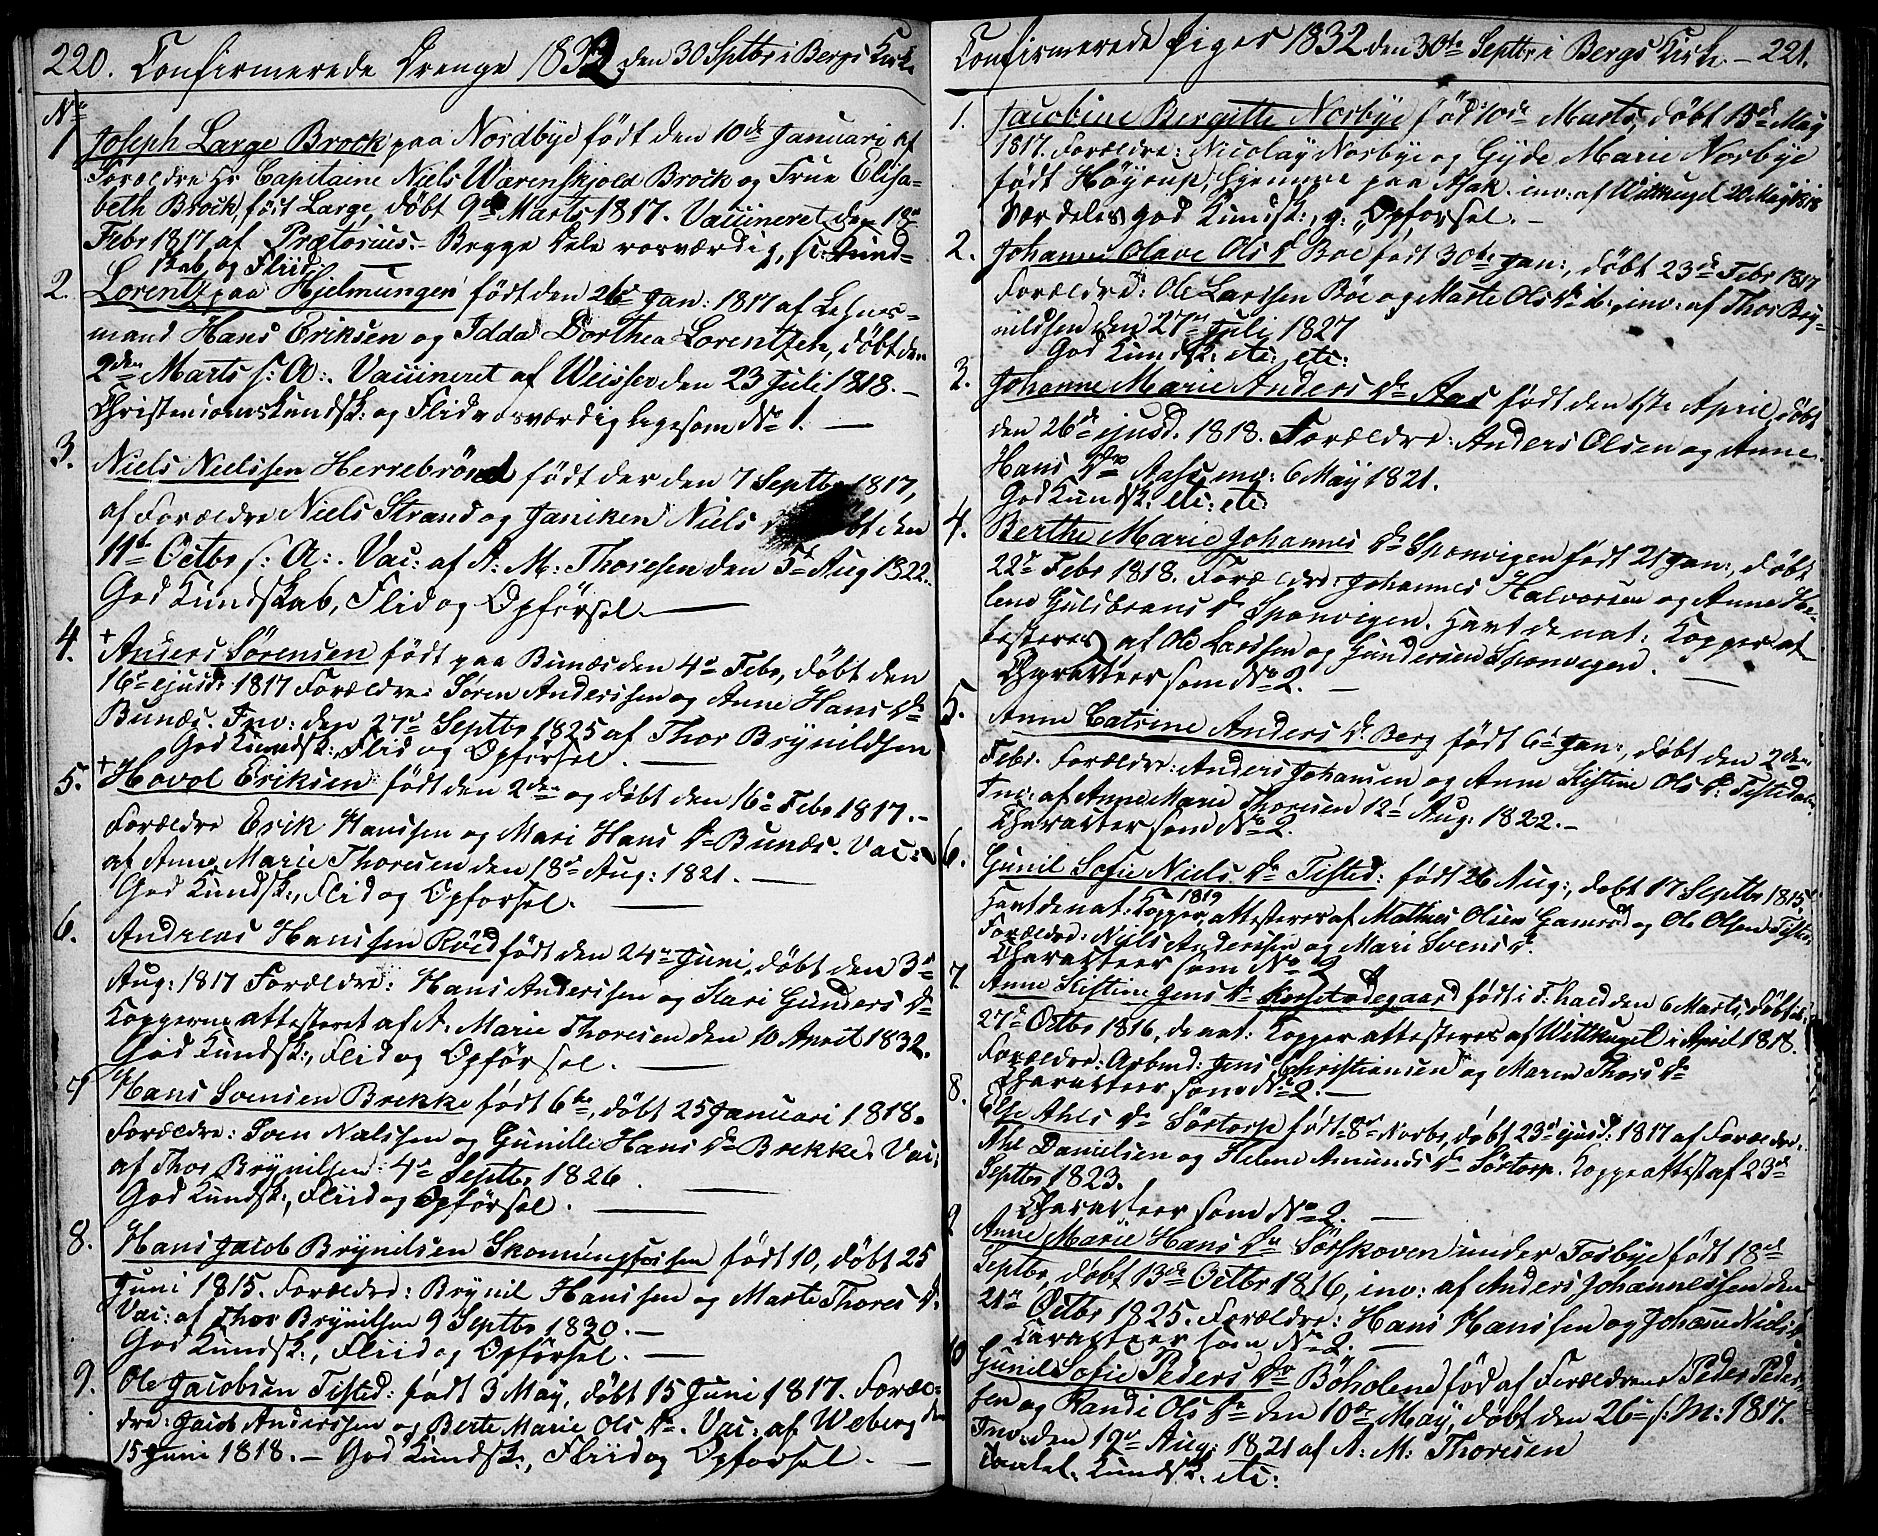 220. Confirmerede Drenge 1832 den 30 Septbr i Bergs Kirke
No
1 Joseph Large Brock paa Nordbye født den 10de Januari af
Forældre Hr Capitaine Niels Wærenskjold Brock og Frue Elisa-
beth Brock, født Large, døbt 9de Marts 1817. Vaccineret den
Febr 1817 af Prætorius. - Begge Dele rosværdig, sc: Kund-
skab og Fliid.
2. Lorentz paa Hjelmungen født den 26de Jan: 1817 af Lehns-
mand Hans Eriksen og Idda Dorthea Lorentzen, døbt den
2den Marts s: A:. Vaccineret af Weisser den 23 Juli 1818. -
Christendomskundsk: og Flid rosværdig ligesom No 1. —
3. Niels Nielssen Herrebrøed født der den 7 Septbr 1817,
af Forældre Niels Strand og Janiken Niels døbt den
11te Octbr s: A:. Vac: af A: M: Thoresen den 5te Aug 1822.
God Kundskab, Flid og Opførsel. —
4. + Anders Sørensen født paa Bunæs den 4de Febr, døbt den
16de ejusd: 1817 Forældre: Søren Anderssen og Anne Hans Dr
Bunæs. Inv: den 27de Septbr 1825 af Thor Brynildsen
God Kundsk: Flid og Opførsel. —
5. + Hovol Eriksen født den 2den og døbt den 16de Febr 1817. -
Forældre Erik Hanssen og Mari Hans Dr Bunæs. Vac:
af Anne Marie Thoresen den 18de Aug: 1821. —
God Kundsk:, Flid og Opførsel. —
6. Andreas Hanssen Röed født den 24de Juni, døbt den 3de
Aug: 1817 Forældre: Hans Anderssen og Kari Gunders Dr
Kopperne attesteret af A: Marie Thoresen den 10 April 1832.
God Kundsk:, Flid og Opførsel. —
7 Hans Svensen Brekke født 6te, døbt 25 Januari 1818.
Forældre: Sven Nielssen og Gunille Hans Dr Brekke. Vac:
af Thor Brynilsen 4de Septbr 1826. —
God Kundsk:, Fliid og Opførsel. —
8. Hans Jacob Brynilsen Skonningfossen født 10, døbt 25
Juni 1815. Forældre: Brynil Hanssen og Marte Thores Dr.
Vac: af Thor Brynilsen 9 Septbr 1830. —
God Kundsk:, Fliid og Opførsel. —
9. Ole Jacobsen Tisted: født 3 May, døbt 15 Juni 1817. Foræl-
dre: Jacob Anderssen og Berte Marie Ols Dr. Vac: af Weberg den
15 Juni 1818. - God Kundsk:, Fliid og Opførsel. —
Confirmerede Piger 1832 den 30te Septbr i Bergs Kirke. - 221.
1. Jacobine Bergitte Norbye født 10de Marts, døbt 15de May
1817. Forældre: Nicolay Norbye og Gyde Marie Norbye
født Høyrup, hjemme paa Asak. inv: af Wittkugel 20 May 1818
Særdeles god Kundsk:, g: Opførsel. -
2. Johanne Olave Ols Dr Böe født 30te Jan:, døbt 23de Febr 1817
Forældre: Ole Larssen Böe og Marte Ols Dr ib:, inv: af Thor Bry-
nildsen den 27de Juli 1827
God Kundsk: etc: etc:
3. Johanne Marie Anders Dr Aas født den 1ste April, døbt
den 26de ejusd. 1818. Forældre: Anders Olsen og Anne
Hans Dr Aas, inv: 6 May 1821.
God Kundsk: etc: etc
4. Berthe Marie Johannes Dr Sponvigen født 21 Jan:, døbt
22de Febr 1818. Forældre: Johannes Halvorsen og Anne He-
lene Gulsbrans Dr Sponvigen. Havt de nat: Kopper at-
testeres af Ole Larssen og Gundersen Sponvigen.
Charakteer som No 2. —
5. Anne Catrine Anders Dr. Berg født 6te Jan:, døbt den 2den
Febr. Forældre: Anders Johansen og Anne Kistine Ols Dr. Tistedalen
Inv: af Anne Marie Thoresen 12te Aug: 1822. -
Charakteer som No 2.
6. Gunil Sofie Niels Dr Tisted: født 26 Aug:, døbt 17 Septbr 1815.
Havt de nat: Kopper 1819 attesteres af Mathes Olsen Gamrød og Ole Olsen Tisted.
Forældre: Niels Anderssen og Mari Svens Dr.
Charakteer som No 2
7. Anne Kistine Jens Dr Korsetødegaard født i F:hald den 6 Marts, døbt ib:
27de Octbr 1816, de nat: Kopper attesteres af Wittkugel i April 1818.
Forældre: Arbmd: Jens Christiansen og Maren Thors Dr
Charakteer som No 2. —
8. Else Ahls Dr Sörtorp født 8de Novbr, døbt 23de ejusd: 1817 af Forældre
Ahl Danielsen og Helene Amunds Dr Sörtorp. Koppeattest af 23de
Septbr 1823.
Charakteer som No 2. —
9 Anne Marie Hans Dr Sörskoven under Torbye født 18de
Septbr, døbt 13de Octbr 1816, inv: af Anders Johannessen den
21de Octbr 1825. Forældre: Hans Hanssen og Johanne Niels Dr
Carakteer som No 2. —
10 Gunil Sofie Peders Dr Böholene fød af Forældrene Peder Peder-
sen og Randi Ols Dr den 10de May, døbt den 26de s: M: 1817.
Inv: den 19de Aug: 1821 af A: M: Thoresen
Kundsk: etc: